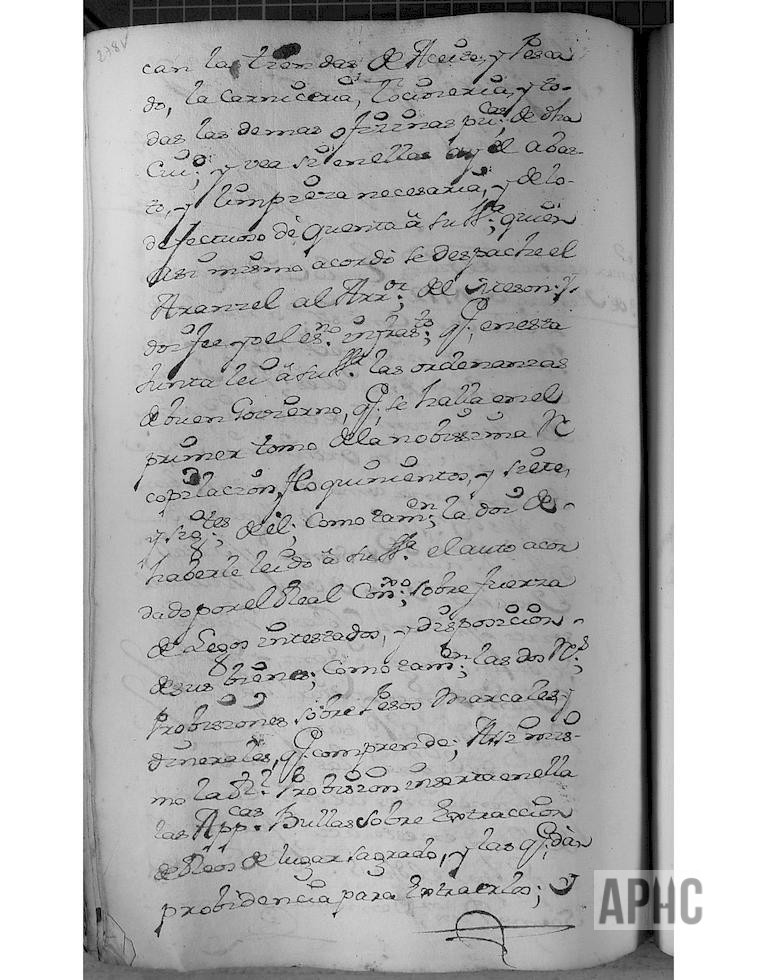 278v
can las tiendas de Aceite, y Pesca
do, la Carniceria, tocineria, y to-
das las demas ofizinas pu.cas de dha
Ciud; y vea si en ellas ay el abas-
to, y limpieza necesaria, y de lo
defectuoso dè quenta â su Sª; quien
asi mismo acordò se despache el
Aranzel al Arr.or; del Meson; Y
doi fee yo el es.no infras.to; q.e en esta
Junta lei â su Sª. las ordenanzas
de buen Govierno, q.e se halla en el
primer tomo de la nobissima Re
copilacion, flo quinientos, y siete,
y sig.tes; de èl; Como tam.en; la doi de
haberle leido â su Sª. el auto acor
dado por el Real Con.xo; sobre fuerza
de Legos intestados, y disposicion
de sus bienes; Como tam.en; las dos R.s;
Probisiones sobre Pesos Marcales, y
dinerales, q.e comprende; Assi mis-
mo la Rl. Probision inserta en ella
las App.cas Bullas sobre Extraccion
de Reos de lugar sagrado, y las q.e dàn
probidencia para Extraerlos; Y
APHC